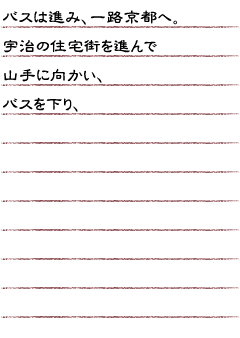 バスは進み、一路京都へ。
宇治の住宅街を進んで
山手に向かい、
バスを下り、